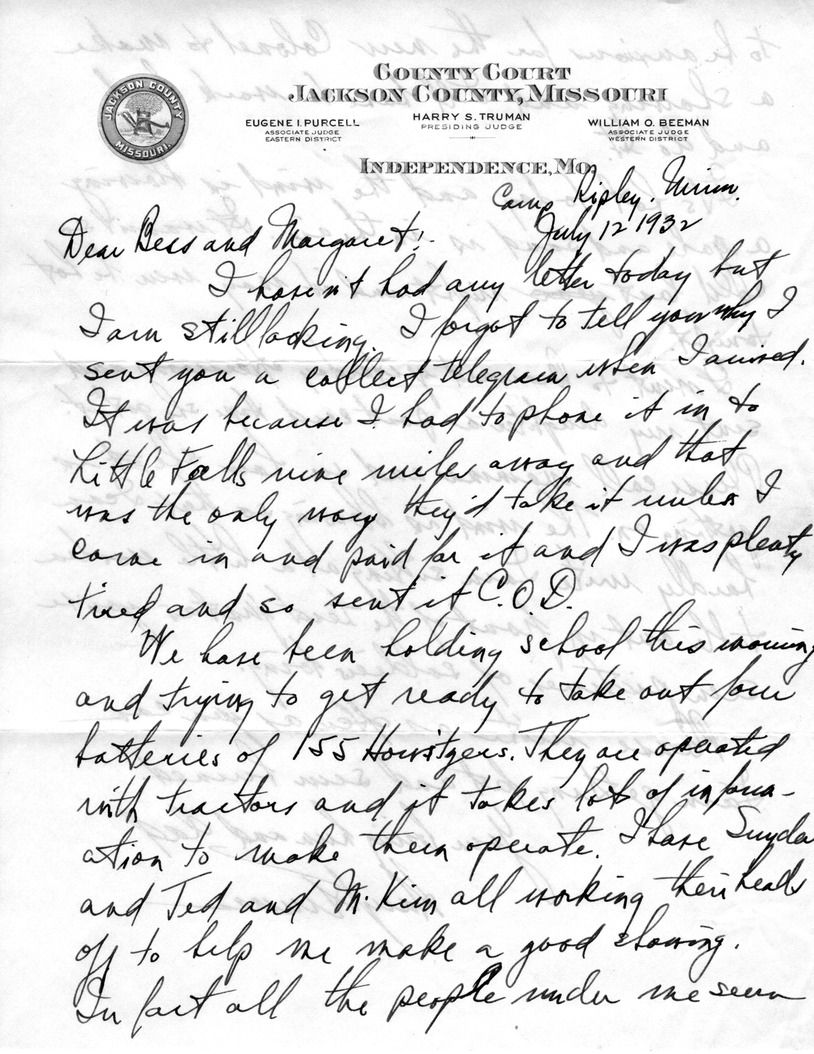 COUNTY COURT
JACKSON COUNTY, MISSOURI
JACKSON COUNTY
MISSOURI.
EUGENE I. PURCELL
ASSOCIATE JUDGE
EASTERN DISTRICT
HARRY S. TRUMAN
PRESIDING JUDGE
WILLIAM O. BEEMAN
ASSOCIATE JUDGE
WESTERN DISTRICT
INDEPENDENCE, MO.
Camp Ripley, Minn.
July 12 1932
Dear Bess and Margaret:
I haven't had any letter today but
I am still looking. I forgot to tell you why I
sent you a collect telegram when I arrived.
It was because I had to phone it in to
Little Falls nine miles away and that
was the only way they'd take it unless I
came in and paid for it and I was plenty
tired and so sent it C.O.D.
We have been holding school this morning
and trying to get ready to take out four
batteries of 155 Howitzers. They are operated
with tractors and it takes lots of inform-
ation to make them operate. I have Snyder
and Ted and McKim all working their heads
off to help me make a good showing.
In fact all the people under me seem